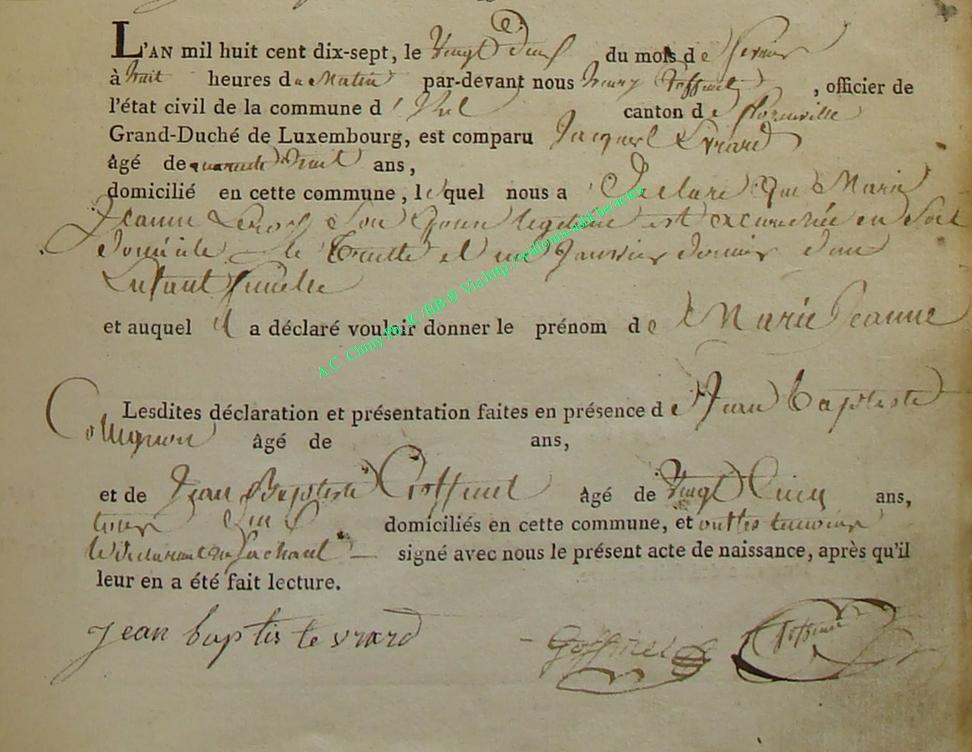 L'AN mil huit cent dix-sept, le Vingt Deux du mois de fevrier
à huit heures du Matin par-devant nous henry Goffinet, officier de
l'état civil de la commune d' canton de florenville
Grand-Duché de Luxembourg, est comparu Jacques Evrard
âgé de quarante huit ans,
domicilié en cette commune, lequel nous a Declaré Que Marie
Jeanne Son Epouse legitime est accouchée en Son
domicile le trente et un Janvier dernier d'un
Enfant femelle
et auquel il a déclaré vouloir donner le prénom de Marie Jeanne
Lesdites déclaration et présentation faites en présence de Jean baptiste
Collignon âgé de ans,
et de Jean Baptiste Goffinet âgé de Vingt Cinq ans,
domiciliés en cette commune, et
signé avec nous le présent acte de naissance, après qu'il
leur en a été fait lecture.
jean baptiste vrard Goffinet Goffinet
A.C. Chiny Ph. JC/BB @ Via http://